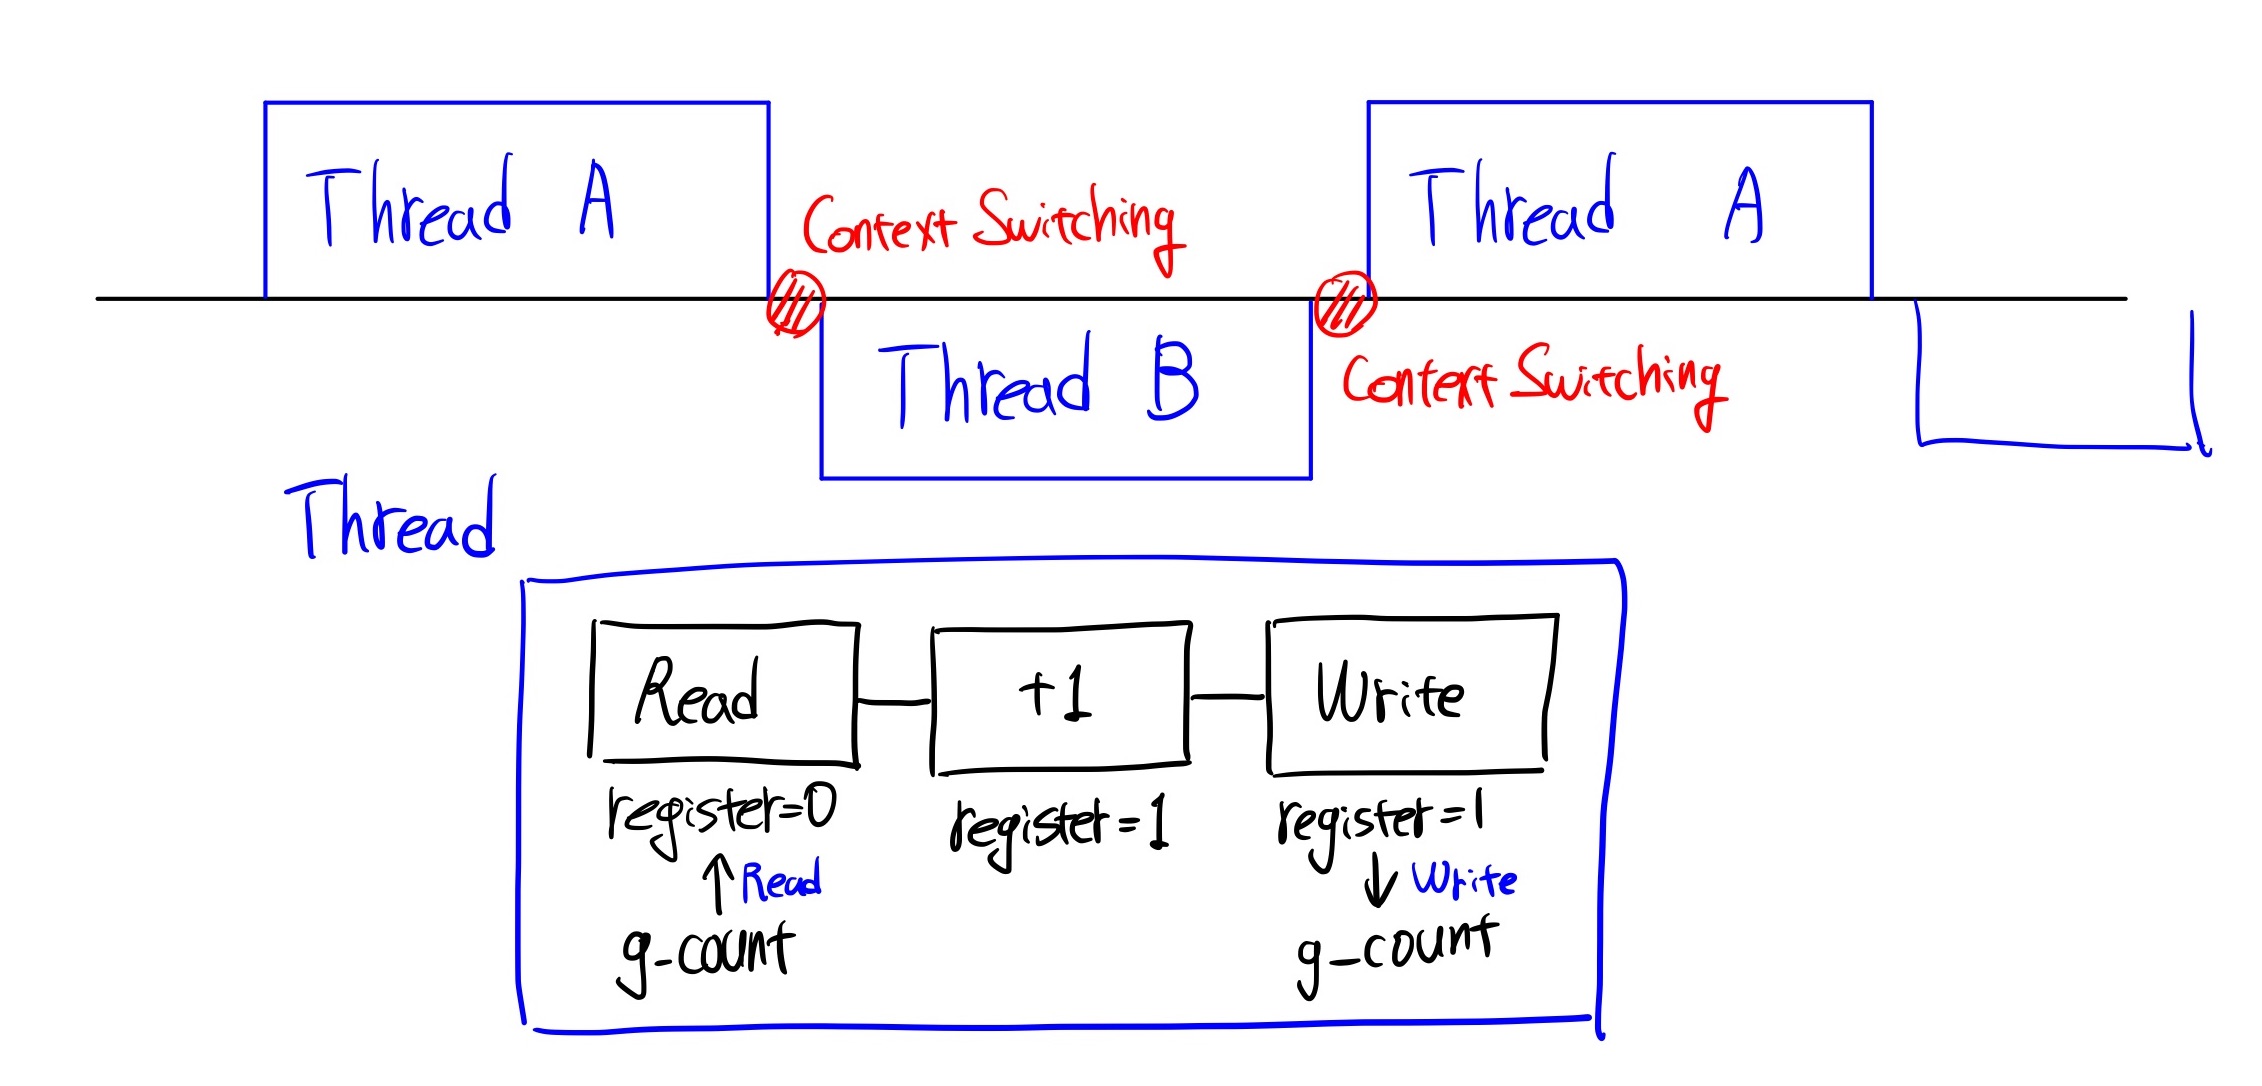 Thread A
Context Switching
Thread A
Thread B
Context Switching
Thread
Read
+1
Write
register=0
register=1
register=1
Read
Write
g_count
g_count